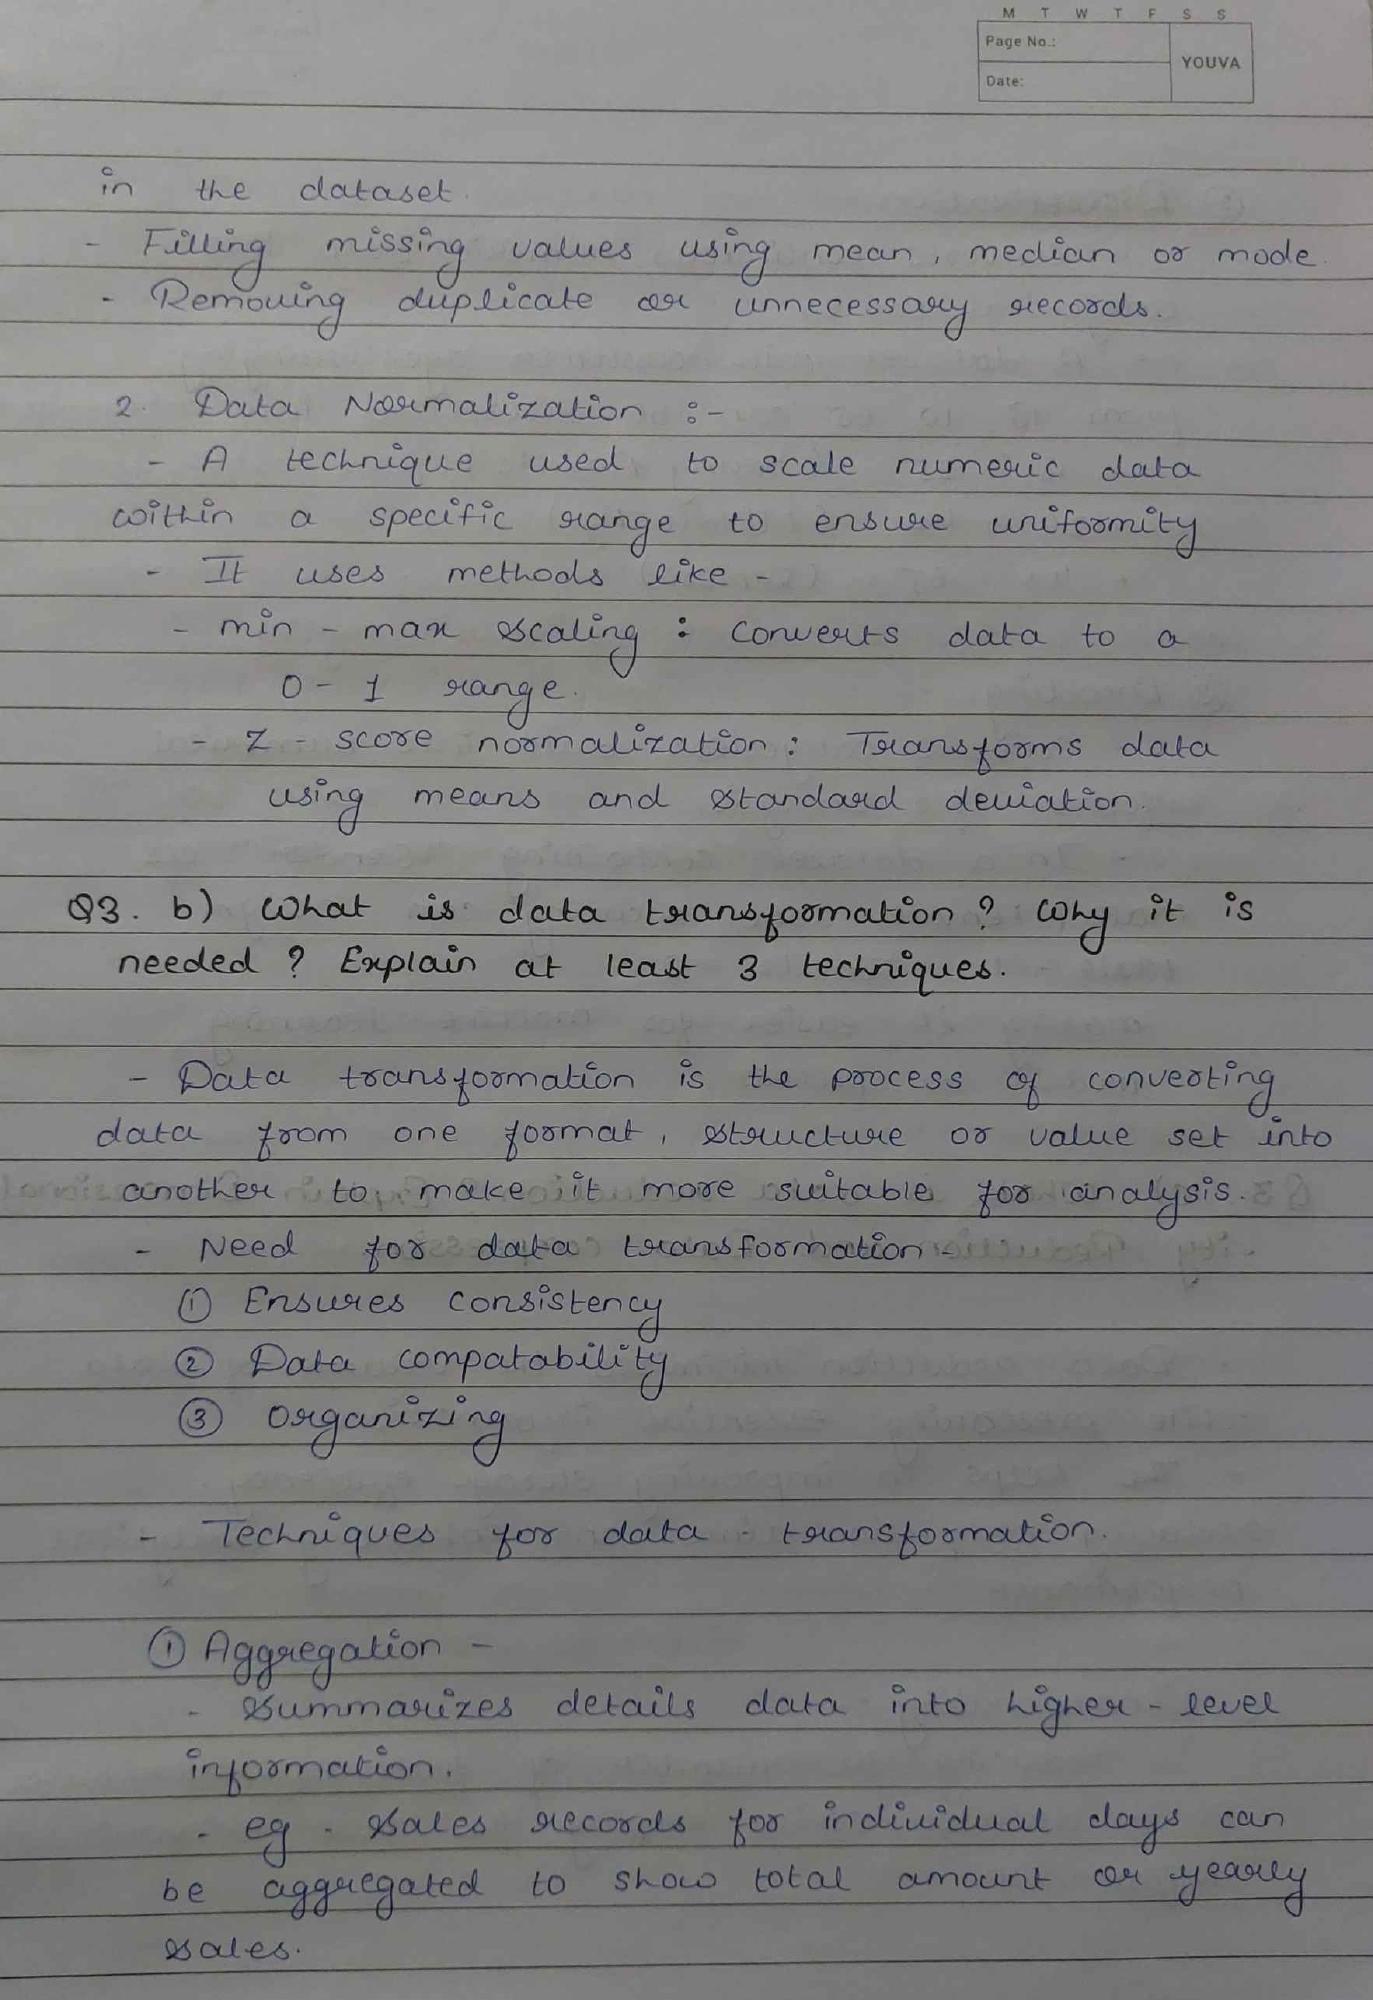 M T W T F S S
Page No.:
YOUVA
Date:
in the dataset.
- Filling missing values using mean, median or mode.
- Removing duplicate or unnecessary records.
2. Data Normalization :-
- A technique used to scale numeric data
within a specific range to ensure uniformity
- It uses methods like -
- min - max scaling : converts data to a
0 - 1 range.
- Z - score normalization : Transforms data
using means and standard deviation.
Q3. b) What is data transformation ? Why it is
needed ? Explain at least 3 techniques.
- Data transformation is the process of converting
data from one format, structure or value set into
another to make it more suitable for analysis.
- Need for data transformation -
① Ensures consistency
② Data compatability
③ Organizing
- Techniques for data - transformation.
① Aggregation -
- Summarizes details data into higher - level
information.
- eg - Sales records for individual days can
be aggregated to show total amount or yearly
sales.